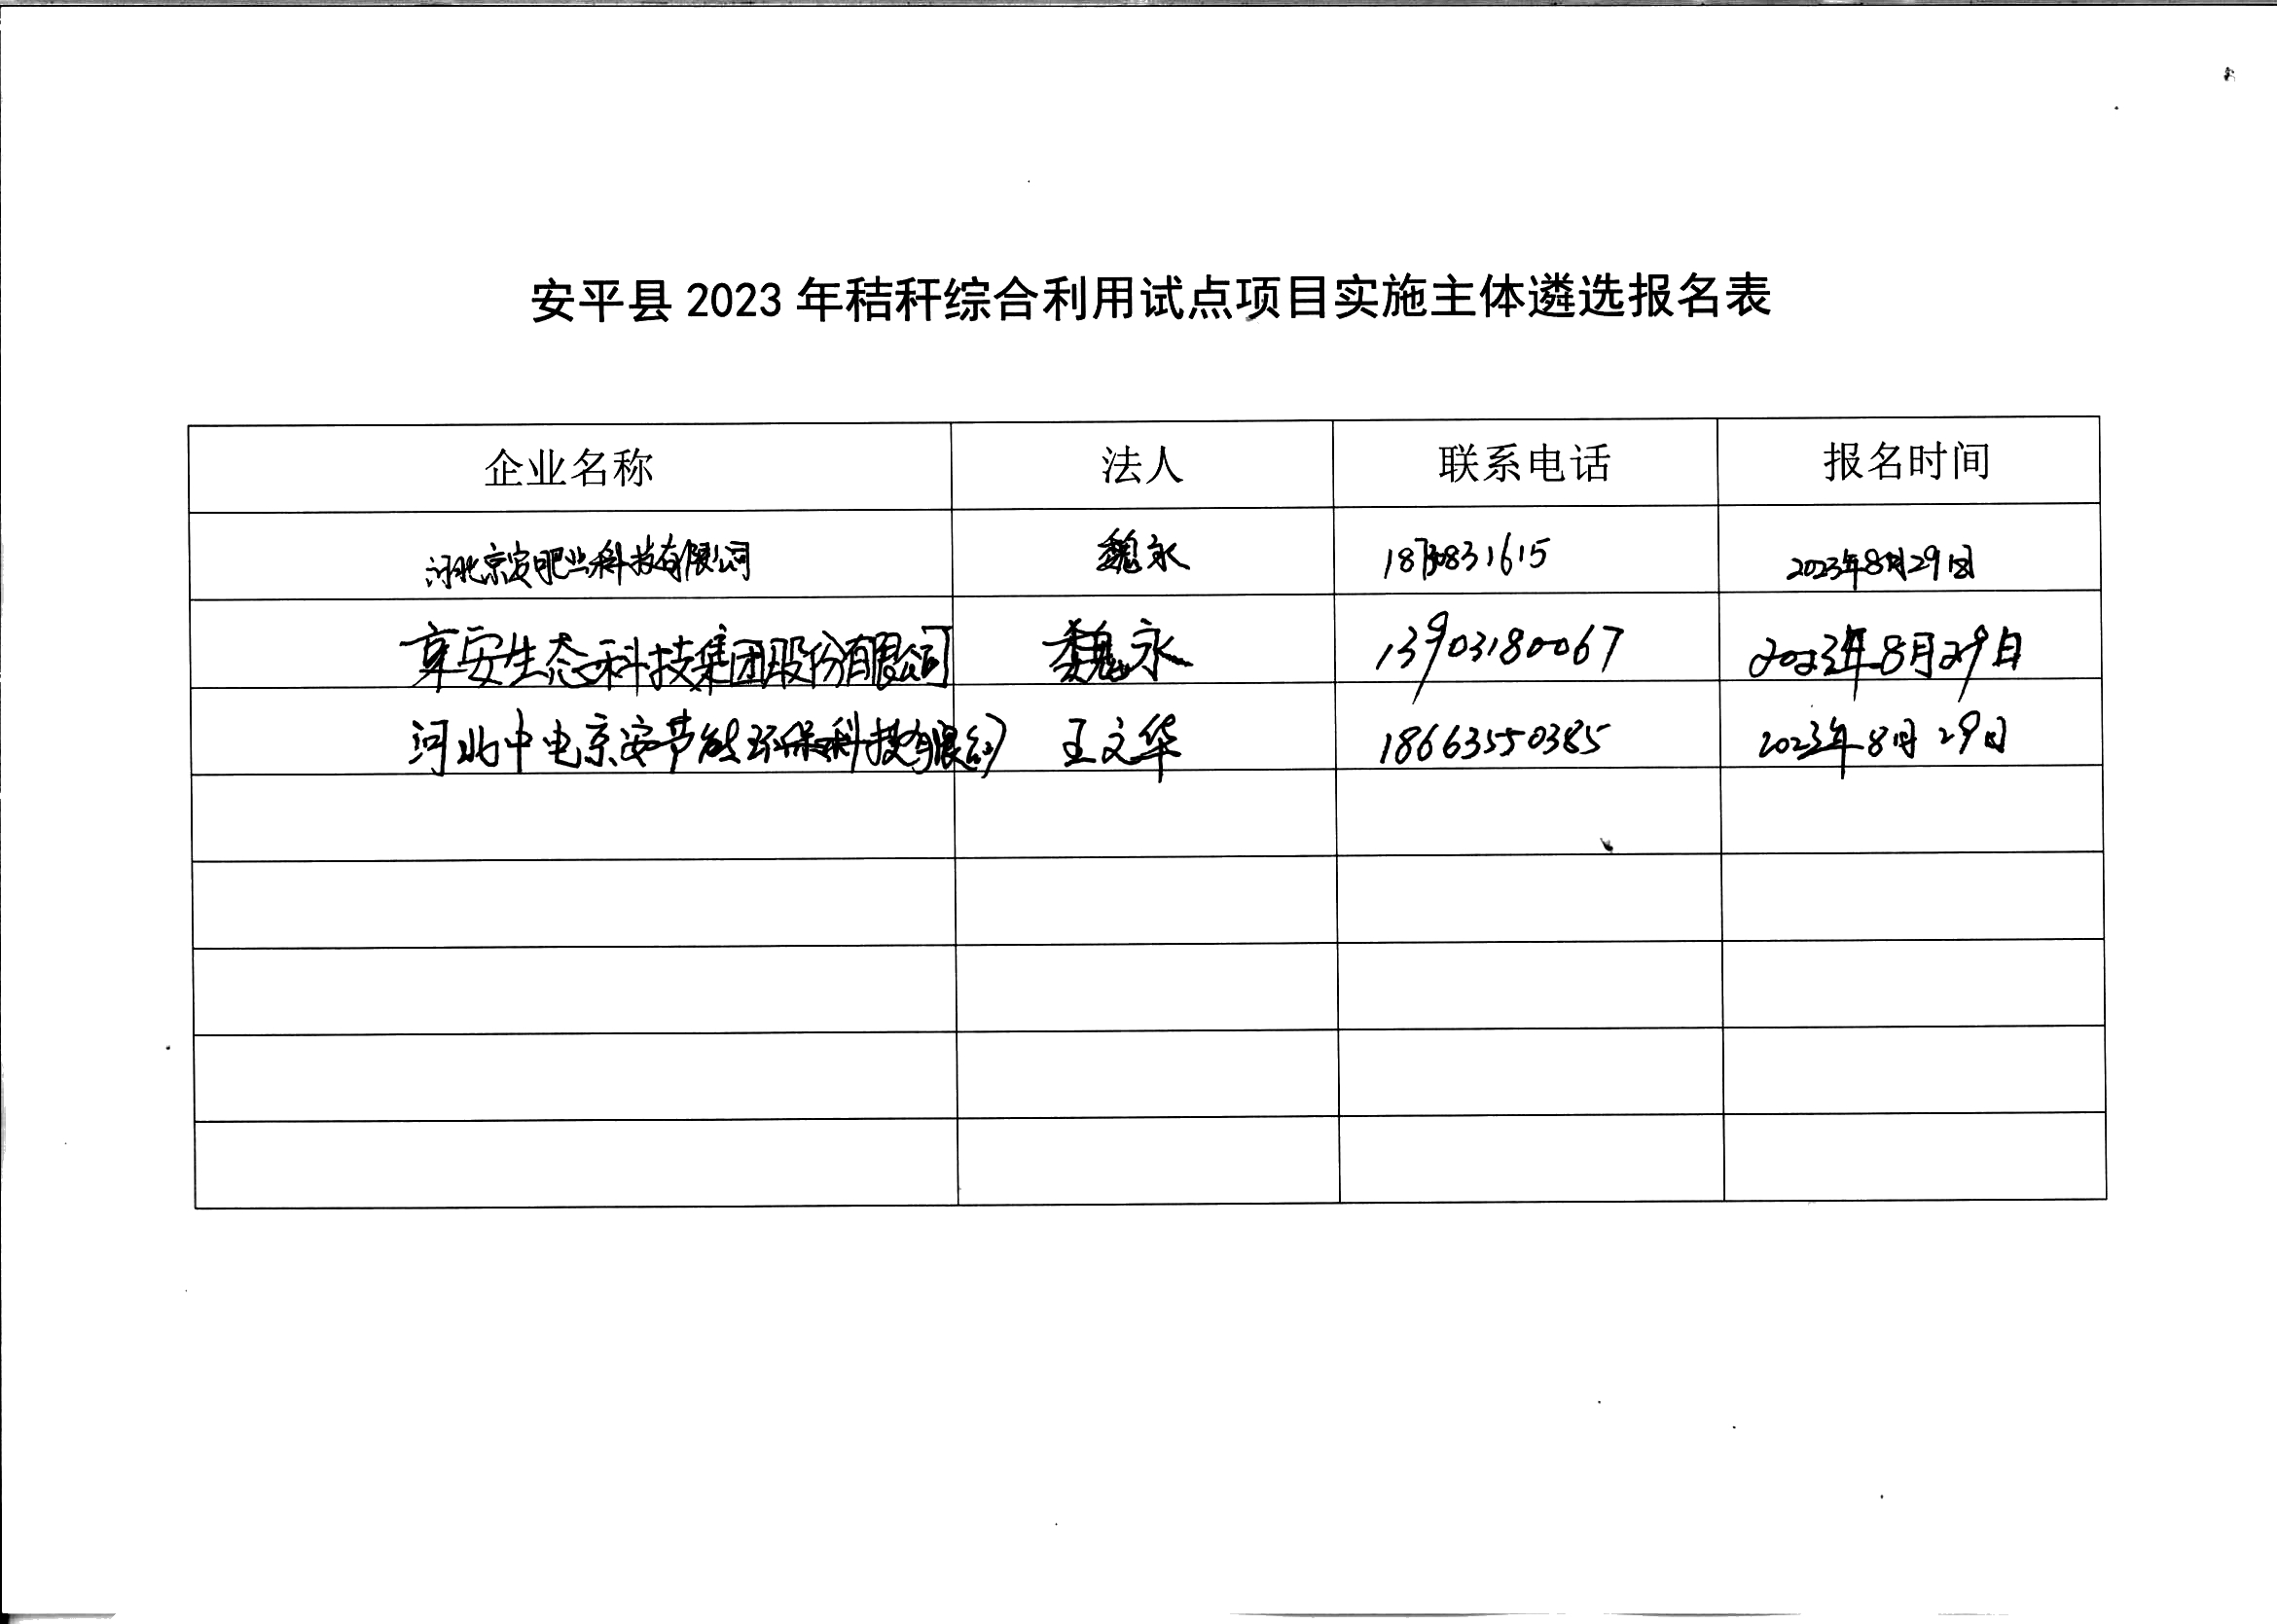 安平县 2023 年秸秆综合利用试点项目实施主体遴选报名表
企业名称 法人 联系电话 报名时间
河北京安肥业科技有限公司 魏永 2023年8月29日
京安生态科技集团股份有限公司 魏永 13903180067 2023年8月29日
河北中电京安节能环保科技有限公司 王文华 18663550385 2023年8月29日